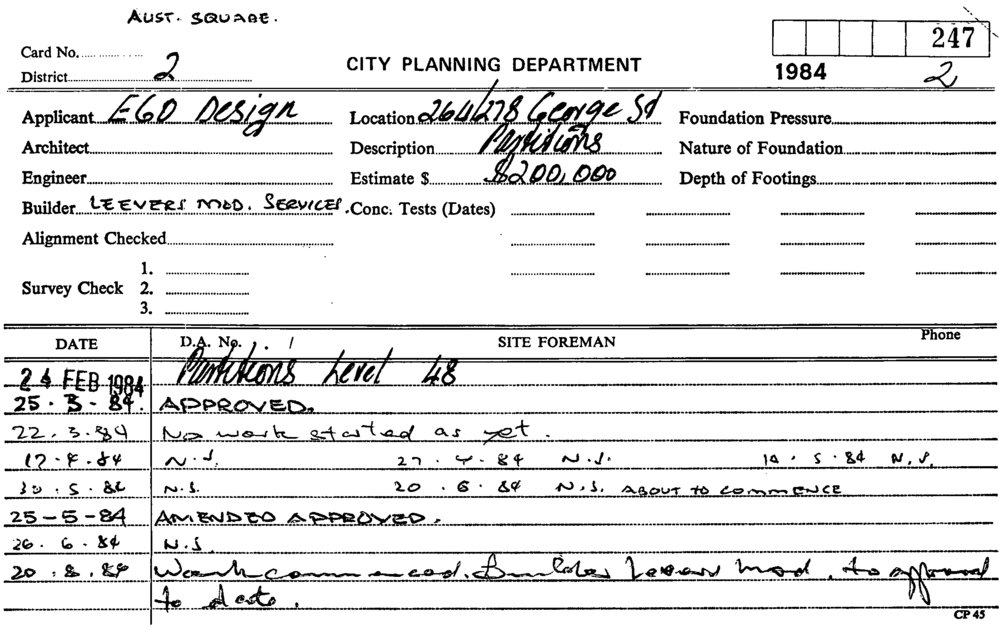 AUST. SQUARE.
Card No.
District 2
CITY PLANNING DEPARTMENT
247
1984 2
Applicant EGO Design Location 264/278 George St Foundation Pressure
Architect Description Partitions Nature of Foundation
Engineer Estimate $ $200,000 Depth of Footings
Builder LEEVERS MOD. SERVICES. Conc. Tests (Dates)
Alignment Checked
1.
Survey Check 2.
3.
DATE D.A. No. SITE FOREMAN Phone
24 FEB 1984 Partitions Level 48
25.3.84. APPROVED.
22.3.84 No work started as yet.
17.4.84 N.S. 27.4.84 N.S. 14.5.84 N.S.
30.5.84 N.S. 20.6.84 N.S. ABOUT TO COMMENCE
25-5-84 AMENDED APPROVED.
26.6.84 N.S.
20.8.84 Work commenced. Builder Leevers Mod. to approval
to date.
CP 45